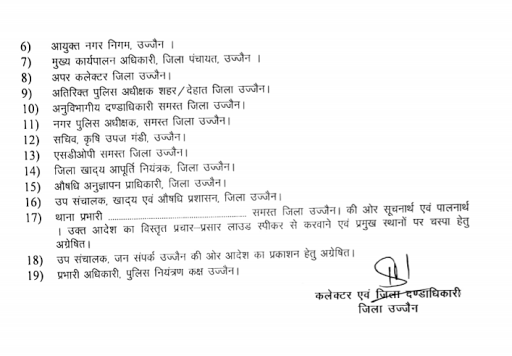 6) आयुक्त नगर निगम, उज्जैन ।
7) मुख्य कार्यपालन अधिकारी, जिला पंचायत, उज्जैन ।
8) अपर कलेक्टर जिला उज्जैन।
9) अतिरिक्त पुलिस अधीक्षक शहर/देहात जिला उज्जैन।
10) अनुविभागीय दण्डाधिकारी समस्त जिला उज्जैन।
11) नगर पुलिस अधीक्षक, समस्त जिला उज्जैन।
12) सचिव, कृषि उपज मंडी, उज्जैन।
13) एसडीओपी समस्त जिला उज्जैन।
14) जिला खाद्य आपूर्ति नियंत्रक, जिला उज्जैन।
15) औषधि अनुज्ञापन प्राधिकारी, जिला उज्जैन।
16) उप संचालक, खाद्य एवं औषधि प्रशासन, जिला उज्जैन।
17) थाना प्रभारी ........................................ समस्त जिला उज्जैन। की ओर सूचनार्थ एवं पालनार्थ
। उक्त आदेश का विस्तृत प्रचार-प्रसार लाउड स्पीकर से करवाने एवं प्रमुख स्थानों पर चस्पा हेतु
अग्रेषित।
18) उप संचालक, जन संपर्क उज्जैन की ओर आदेश का प्रकाशन हेतु अग्रेषित।
19) प्रभारी अधिकारी, पुलिस नियंत्रण कक्ष उज्जैन।
कलेक्टर एवं जिला दण्डाधिकारी
जिला उज्जैन